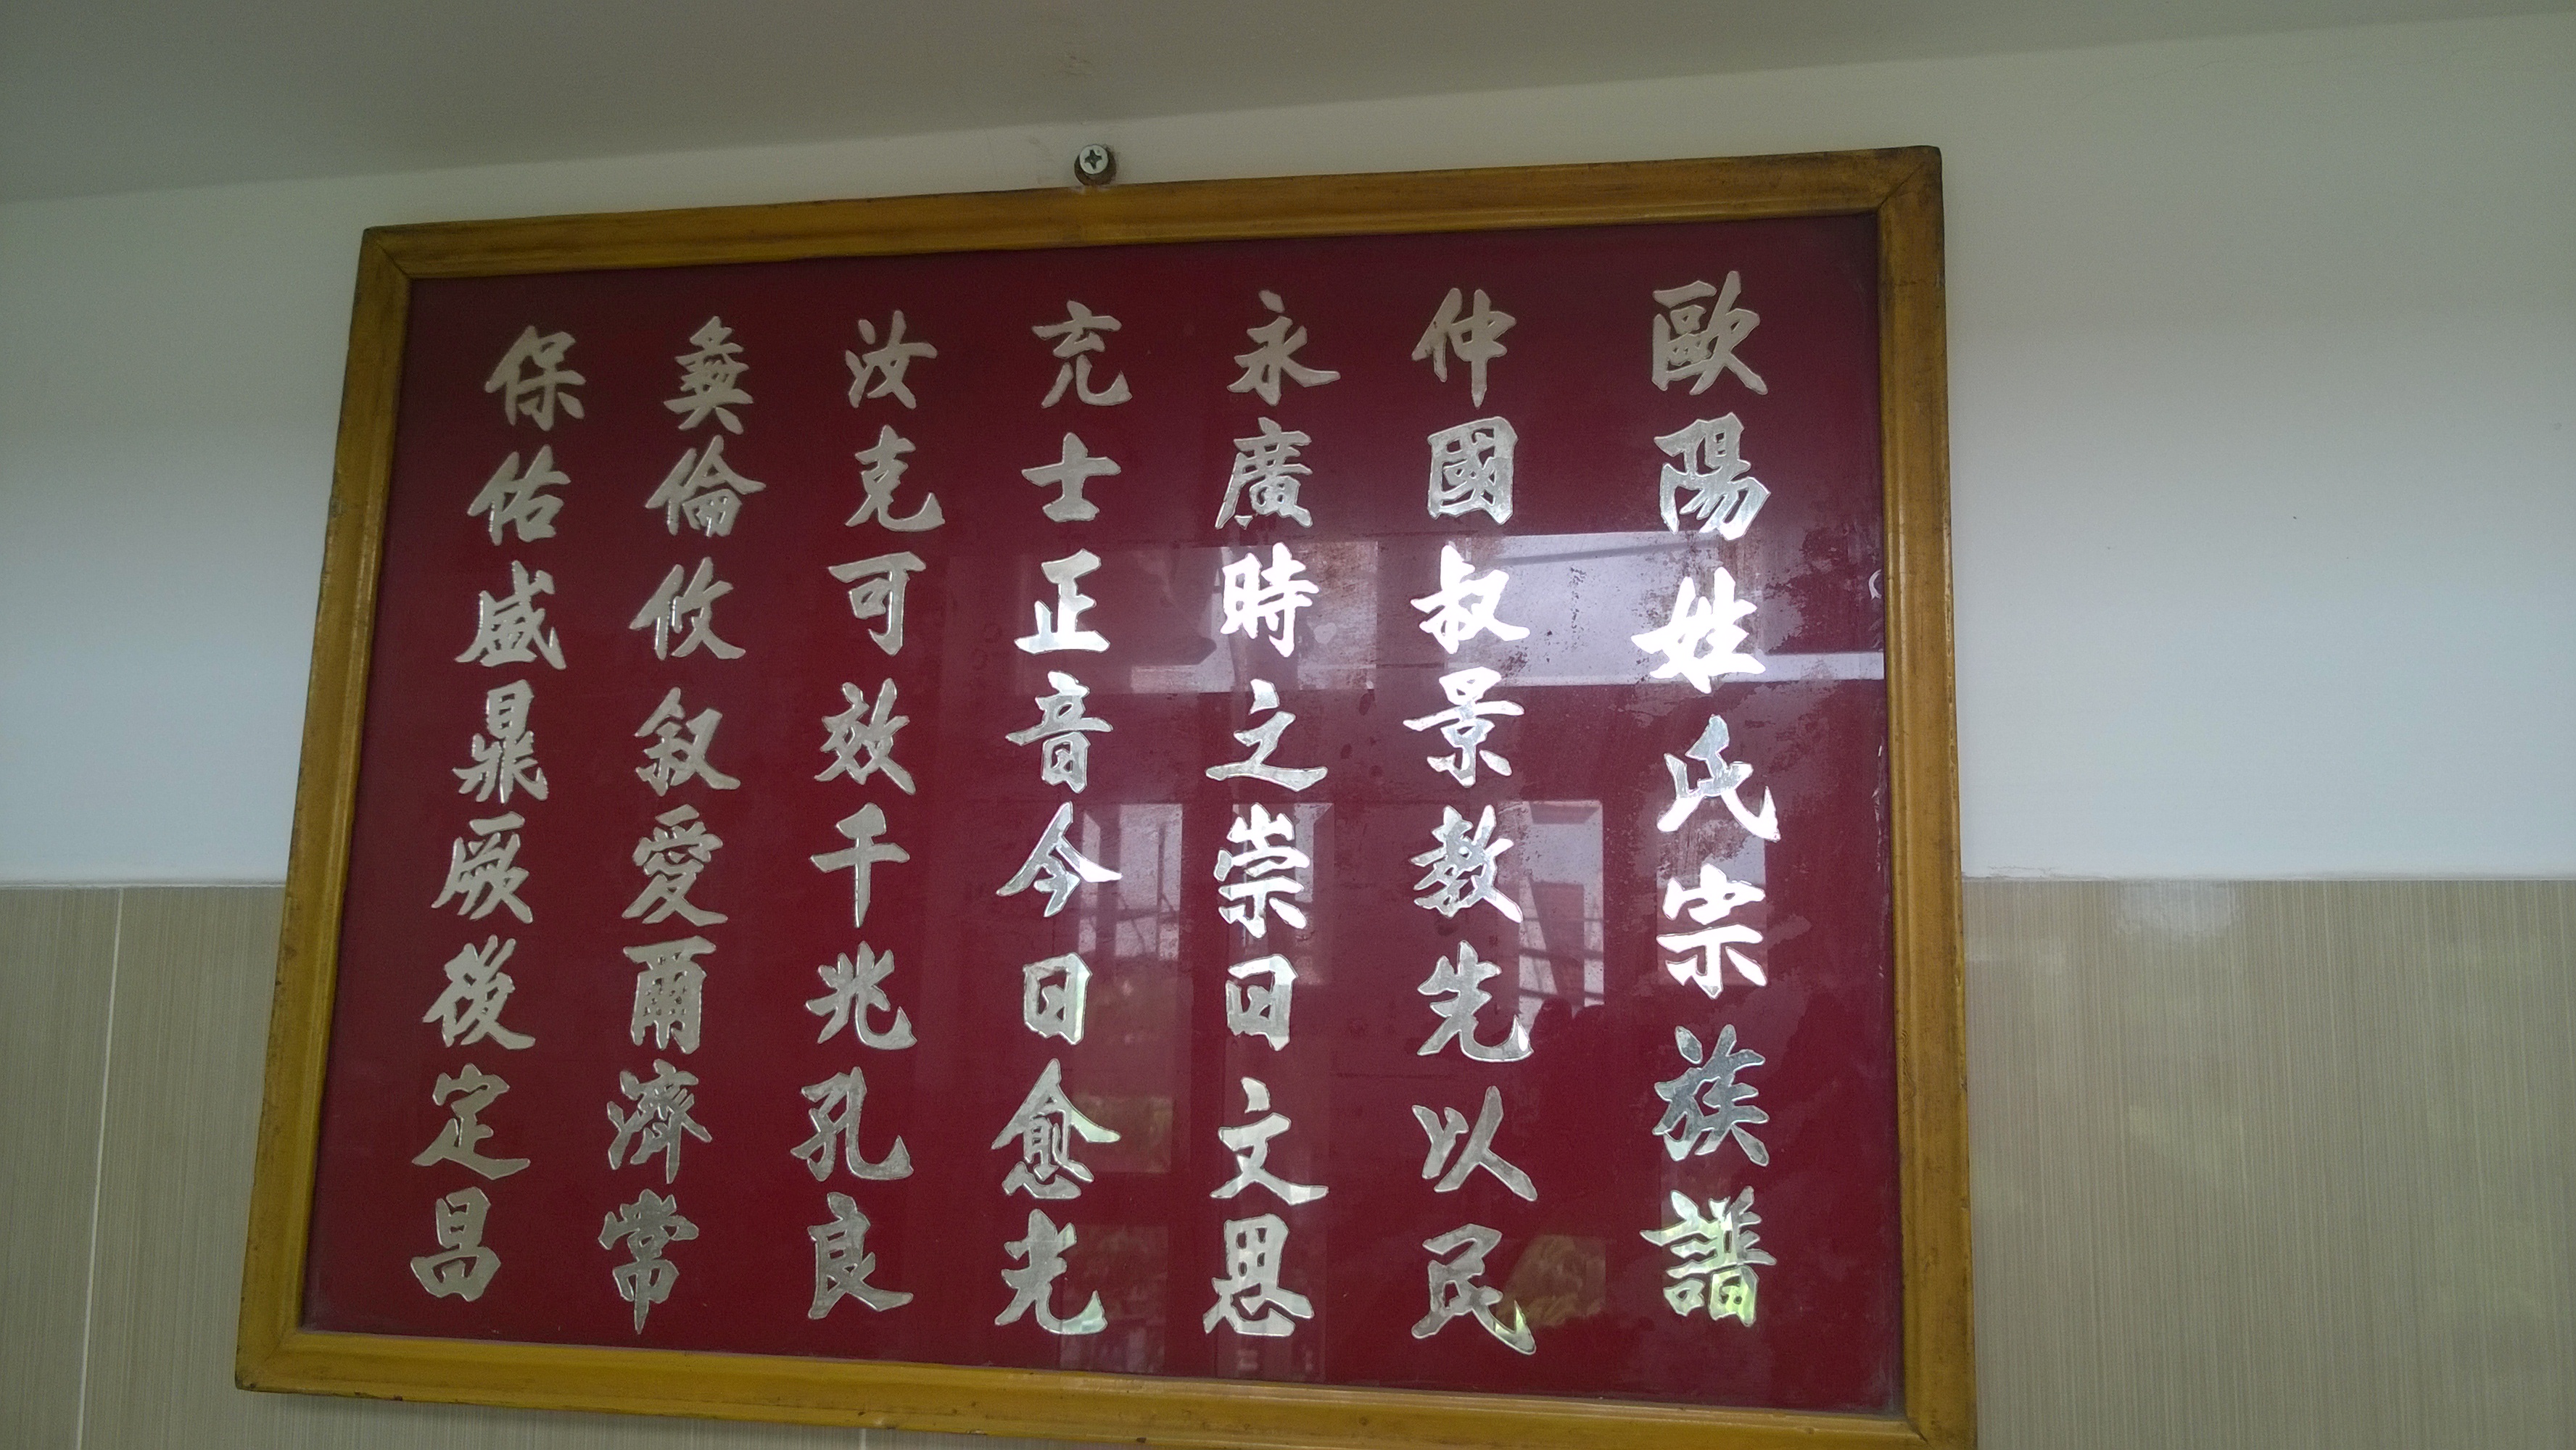 歐陽姓氏宗族譜
仲國叔景教先以民
永廣時之崇曰文思
充士正音今日愈光
汝克可效千兆孔良
彝倫攸叙愛爾濟常
保佑盛鼎厥後定昌